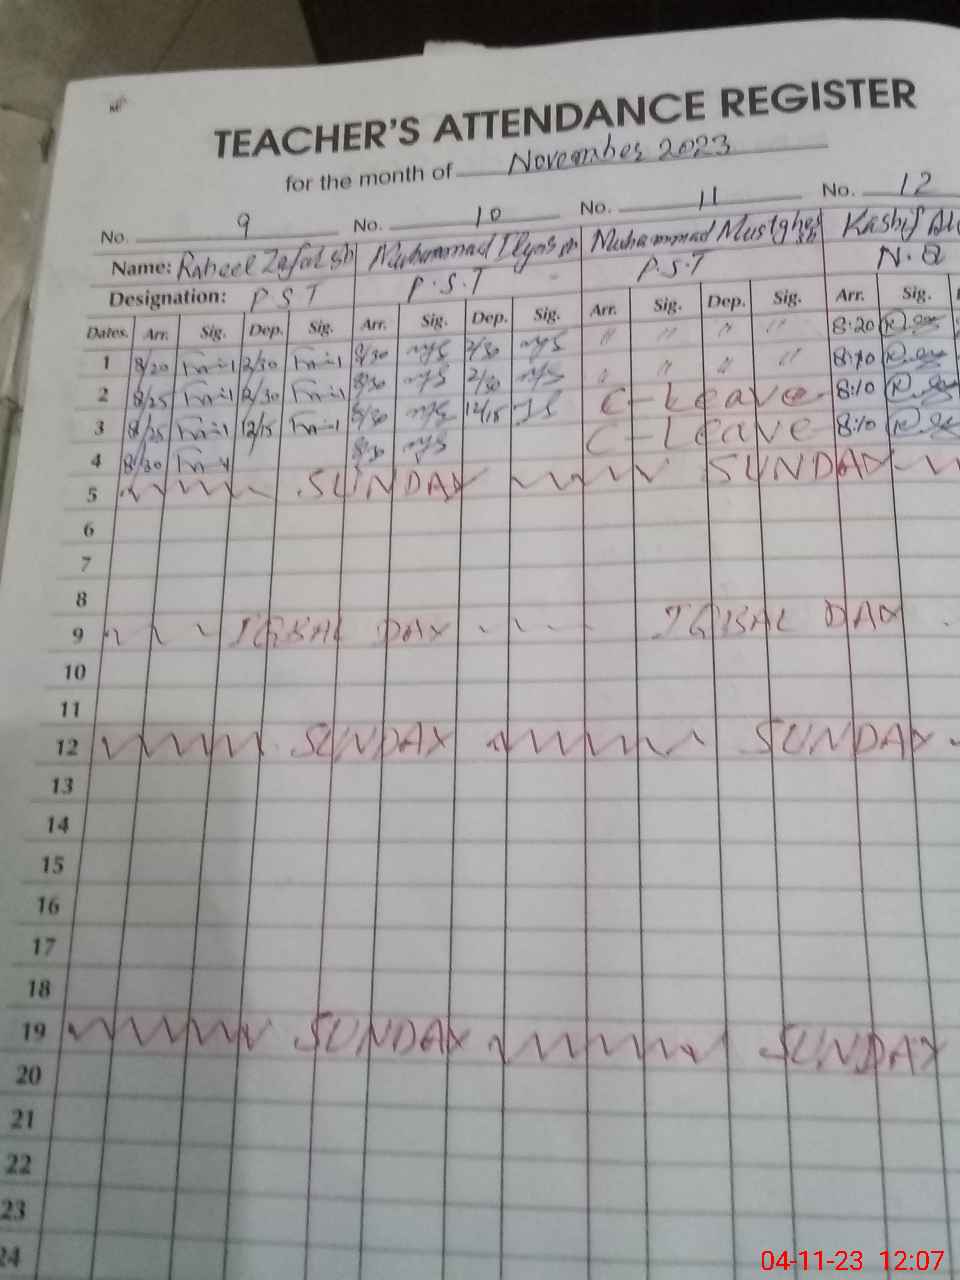 TEACHER'S ATTENDANCE REGISTER
for the month of November 2023
No. 9 No. 10 No. 11 No. 12
Name: Raheel Zafar Muhammad Ilyas Muhammad Kashif
Designation: P S T P.S.T P.S.T
Dates. Arr. Sig. Dep. Sig. Arr. Sig. Dep. Sig. Arr. Sig. Dep. Sig. Arr. Sig.
1 8/20 2/30 8/30 2/30 " " " " 8:20
2 8/25 2/30 8/30 2/30 " " " " 8:10
3 8/25 12/15 8/30 12/15 C-Leave 8:10
4 8/30 8/30 C-Leave 8:10
5 SUNDAY SUNDAY
6
7
8
9 IQBAL DAY IQBAL DAY
10
11
12 SUNDAY SUNDAY
13
14
15
16
17
18
19 SUNDAY SUNDAY
20
21
22
23
24
04-11-23 12:07